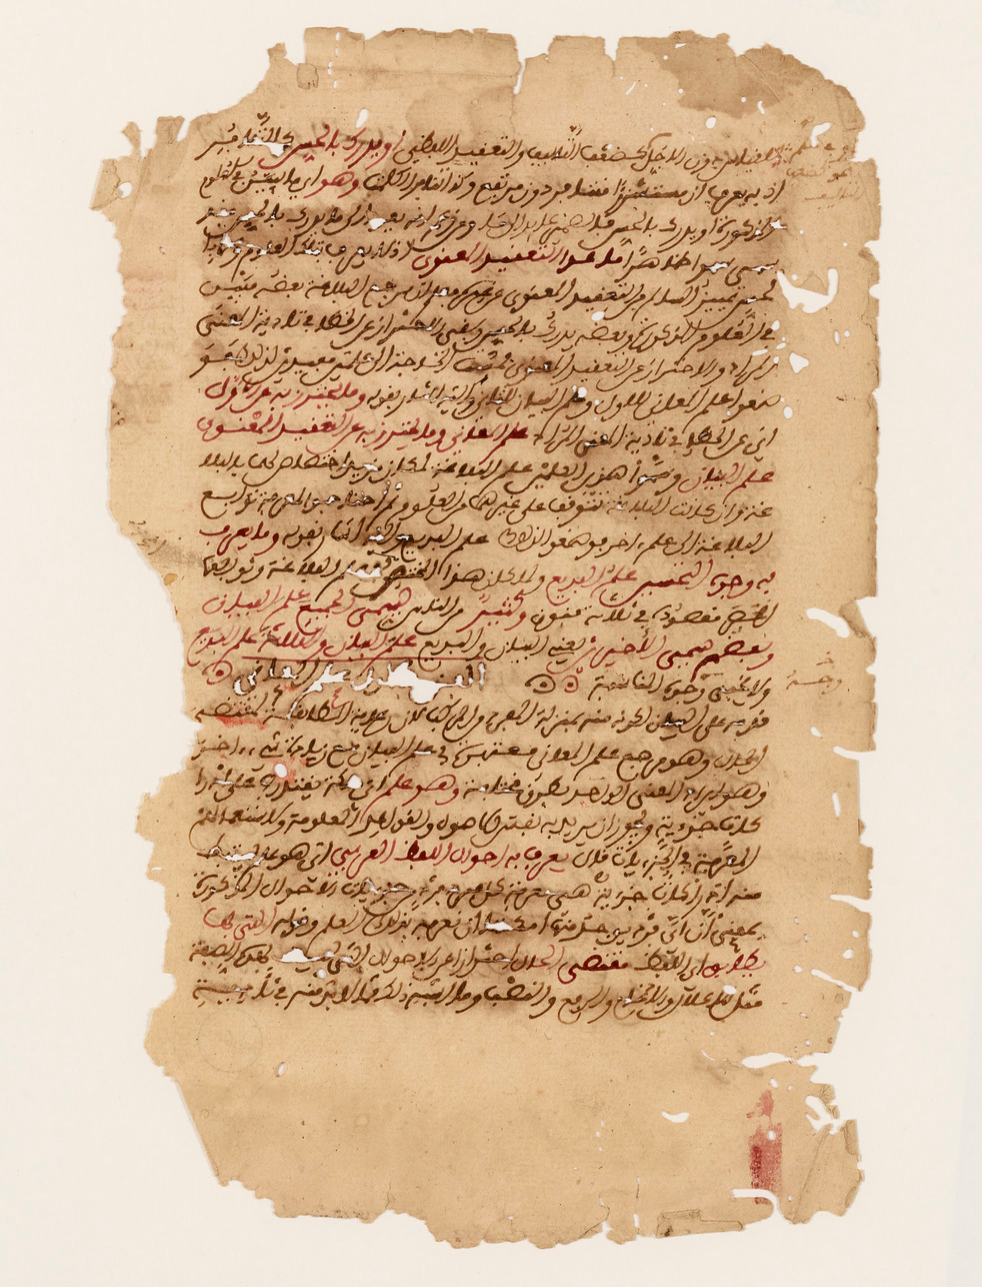 القياس دون الاجلل كضعف التأليف والتعقيد اللفظي او يدرك بالحس كالتنافر
اذ به يعرف ان مستشزرا متنافر دون مرتفع وكذا تنافر الكلمات وهو اي ما يبين في العلوم
المذكورة او يدرك بالحس فالضمير عايد الى ما ومن زعم انه يعود الى ما يدرك بالحس فقد
سهى سهوا ظاهرا ما عدا التعقيد المعنوي اذ لا يعرف بتلك العلوم ولا
بالحس تمييز السالم من التعقيد المعنوي عن غيره فعلم ان مرجع البلاغة بعضه مبين
في العلوم المذكورة وبعضه يدرك بالحس وبقي الاحتراز عن الخطا في تادية المعنى
المراد والاحتراز عن التعقيد المعنوي فمست الحاجة الى علمين مفيدين لذلك فو
ضعوا علم المعاني للاول وعلم البيان للثاني واليه اشار بقوله وما يحترز به عن الاول
اي عن الخطا في تادية المعنى المراد علم المعاني وما يحترز به عن التعقيد المعنوي
علم البيان وسموا هذين العلمين علم البلاغة لمكان مزيد اختصاص لهما بالبلا
غة وان كانت البلاغة تتوقف على غيرهما من العلوم ثم احتاجوا لمعرفة توابع
البلاغة الى علم اخر فوضعوا لذلك علم البديع واليه اشار بقوله وما يعرف
به وجوه التحسين علم البديع ولما كان هذا المختصر في علم البلاغة وتوابعها
انحصر مقصوده في ثلاثة فنون وكثير من الناس يسمي الجميع علم البيان
وبعضهم يسمي الاخيرين يعني البيان والبديع علم البيان والثلاثة علم البديع
ولا يخفى وجوه المناسبة الفن الاول علم المعاني
قدمه على البيان لكونه منه بمنزلة المفرد من المركب لان رعاية المطابقة لمقتضى
الحال وهو مرجع علم المعاني معتبرة في علم البيان مع زيادة شيء اخر
وهو ايراد المعنى الواحد بطرق مختلفة وهو علم اي ملكة يقتدر بها على ادرا
كات جزءية ويجوز ان يريد به نفس الاصول والقواعد المعلومة ولاستعمالهم
المعرفة في الجزئيات قال يعرف به احوال اللفظ العربي اي هو علم يستنبط
منه ادراكات جزئية هي معرفة كل فرد فرد من جزئيات الاحوال المذكورة
بمعنى ان اي فرد يوجد منها امكننا ان نعرفه بذلك العلم وقوله التي بها
يطابق اي اللفظ مقتضى الحال احتراز عن الاحوال التي ليست بهذه الصفة
مثل الاعلال والادغام والرفع والنصب وما اشبه ذلك مما لا بد منه في تادية